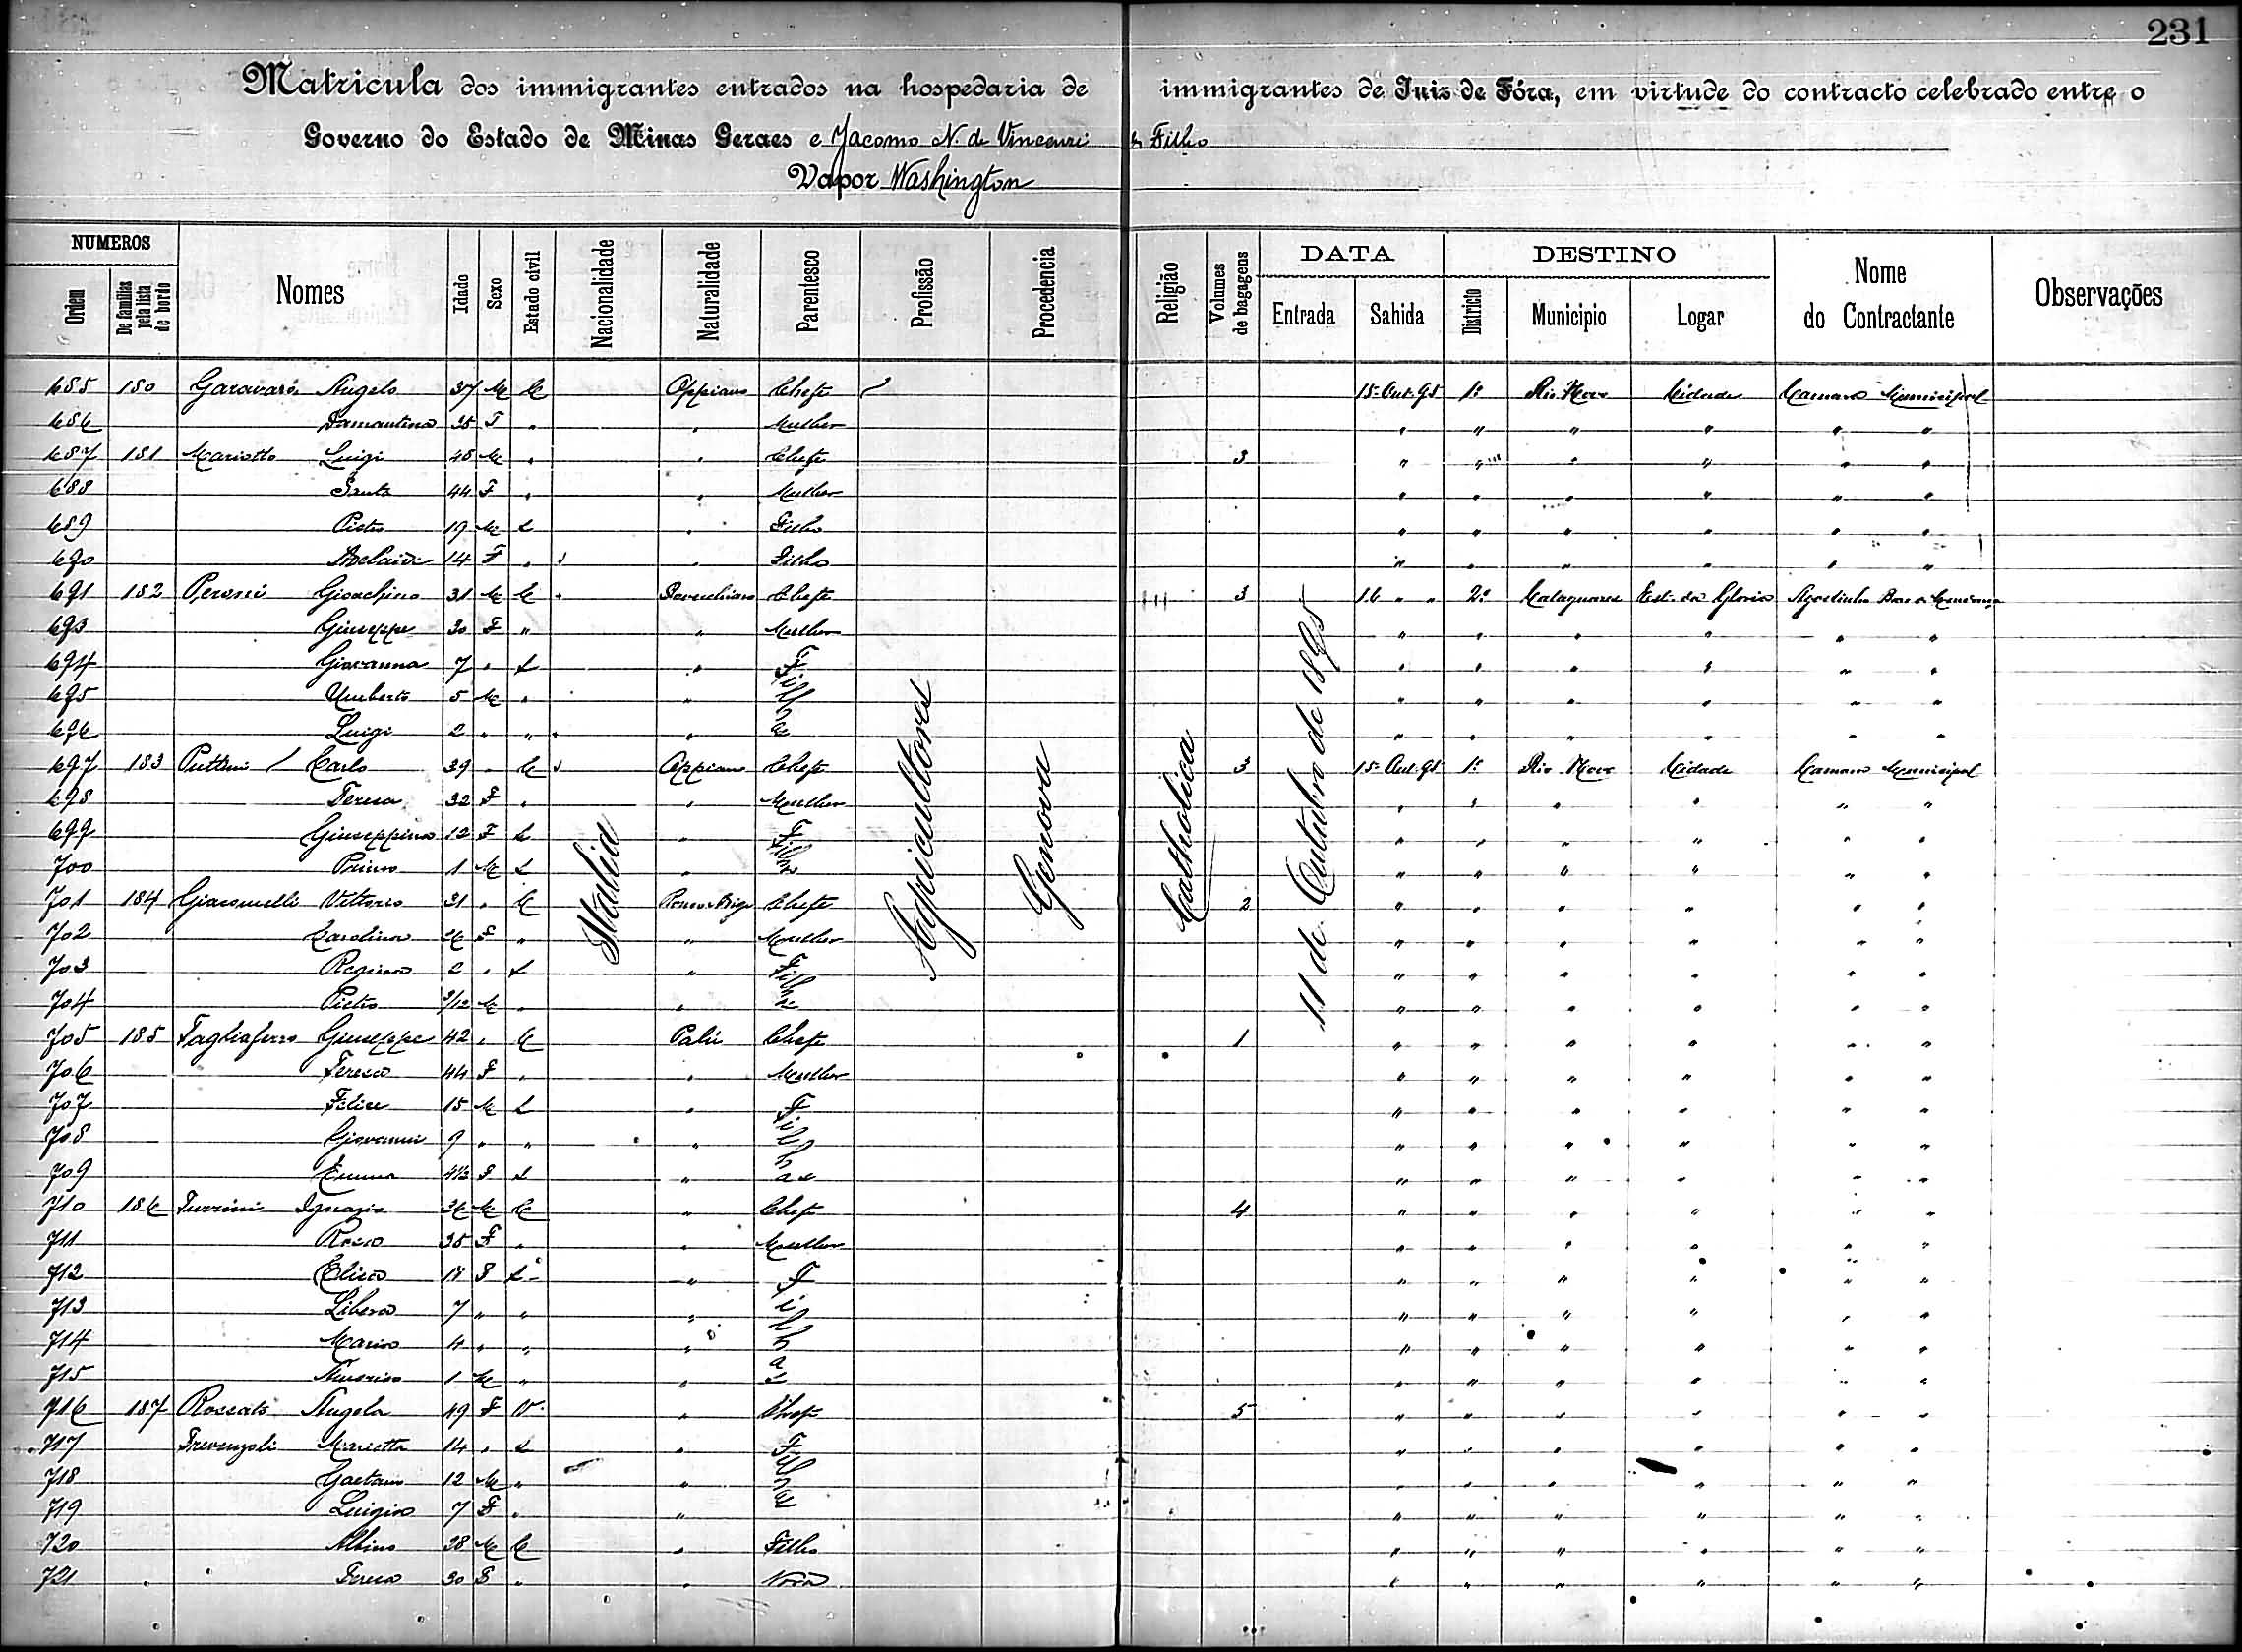 231
Matricula dos immigrantes entrados na hospedaria de immigrantes de Juiz de Fóra, em virtude do contracto celebrado entre o
Governo do Estado de Minas Geraes e Jacomo N. de Vincenzi & Filho
Vapor Washington
NUMEROS DATA DESTINO
Ordem De familias pela lista de bordo Nomes Idade Sexo Estado civil Nacionalidade Naturalidade Parentesco Profissão Procedencia Religião Volumes de bagagens Entrada Sahida Districto Municipio Logar Nome do Contractante Observações
Italia Agricultores Genova Catholica 11 de Outubro de 1895
685 180 Angelo 37 M C Oppiano Chefe 15-Out-95 1º Rio Novo Cidade Camara Municipal
686 Diamantina 35 F " " Mulher " " " " " "
687 181 Mariotto Luigi 48 M " " Chefe 3 " " " " " "
688 Santa 44 F " " Mulher " " " " " "
689 Pietro 19 M S " Filho " " " " " "
690 Adelaide 14 F " " Filha " " " " " "
691 182 Peroni Gioachino 31 M C Chefe 3 16 " " 2º Cataguazes Est. da Gloria Agostinho
693 Giuseppe 30 F " " Mulher " " " " " "
694 Giovanna 7 " S " Filhos " " " " " "
695 Umberto 5 M " " " " " " " "
696 Luigi 2 " " " " " " " " "
697 183 Puttini Carlo 39 " C Oppiano Chefe 3 15-Out-95 1º Rio Novo Cidade Camara Municipal
698 Teresa 32 F " " Mulher " " " " " "
699 Giuseppina 12 F S " Filhos " " " " " "
700 Primo 1 M S " " " " " " "
701 184 Giacomelli Vittorio 31 " C Chefe 2 " " " " " "
702 Carolina 26 F " " Mulher " " " " " "
703 Regina 2 " S " Filhos " " " " " "
704 Pietro M " " " " " " " "
705 185 Tagliaferro Giuseppe 42 " C Palú Chefe 1 " " " " " "
706 Teresa 44 F " " Mulher " " " " " "
707 Felice 15 M S " Filhos " " " " " "
708 Giovanni 9 " " " " " " " " "
709 Emma 4½ F S " " " " " " "
710 186 Turrini Ignazio 36 M C " Chefe 4 " " " " " "
711 Rosa 35 F " " Mulher " " " " " "
712 Elisa F S " Filhas " " " " " "
713 Libera 7 " " " " " " " " "
714 Maria 4 " " " " " " " " "
715 1 M " " " " " " " "
716 187 Roccato Angela 49 F V " Chefe 5 " " " " " "
717 Trevenzoli Marietta 14 " S " Filhos " " " " " "
718 Gaetano 12 M " " " " " " " "
719 Luigia 7 F " " " " " " " "
720 Albino 28 M C " Filho " " " " " "
721 Teresa 30 F " " Nora " " " " " "